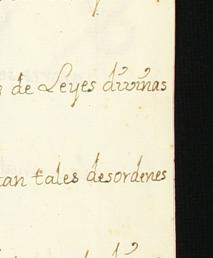 de Leyes divinas
tan tales desordenes